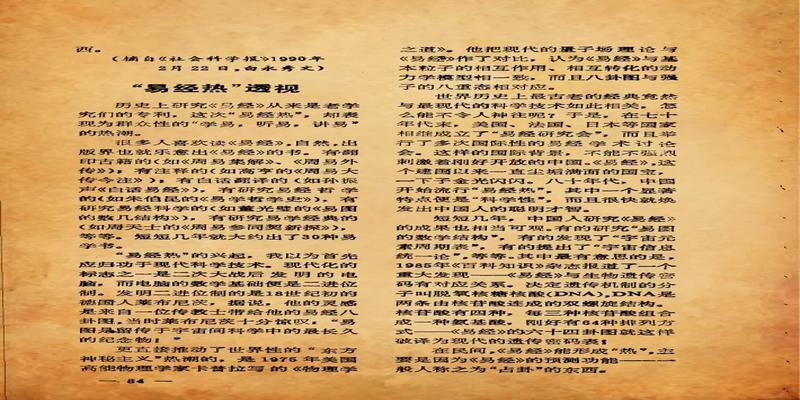 西。
(摘自《社会科学报》1990年
2月22日,白永秀文)
“易经热”透视
历史上研究《易经》从来是老学
究们的专利,这次“易经热”,却表
现为群众性的“学易,听易,讲易”
的热潮。
很多人喜欢读《易经》,自然,出
版界也就乐意出《易经》的书。有翻
印古籍的(如《周易集解》、《周易外
传》),有注释的(如高亨的《周易大
传今注》),有白话翻译的(如孙振
声《白话易经》),有研究易经哲学
的(如朱伯昆的《易学哲学史》),有
研究易经科学的(如董光璧的《易图
的数几结构》),有研究易学经典的
(如周天士的《周易参同契新探》),
等等。短短几年就大约出了30种易
学书。
“易经热”的兴起,我以为首先
应归功于现代科学技术。现代化的
标志之一是二次大战后发明的电
脑,而电脑的数学基础便是二进位
制。发明二进位制的是18世纪初的
德国人莱布尼茨。据说,他的灵感
是来自一位传教士带给他的易经八
卦图,当时莱布尼茨十分惊叹:“易
图是留传于宇宙间科学中的最长久
的纪念物!”
更直接推动了世界性的“东方
神秘主义”热潮的,是1975年美国
高能物理学家卡普拉写的《物理学
— 84 —
之道》。他把现代的量子场理论与
《易经》作了对比,认为《易经》与基
本粒子的相互作用、相互转化的动
力学模型相一致,而且八卦图与强
子的八重态相对应。
世界历史上最古老的经典竟然
与最现代的科学技术如此相关,怎
么能不令人神往呢?于是,在七十
年代末,美国、法国、日本等国家
相继成立了“易经研究会”,而且举
行了多次国际性的易经学术讨论
会。这样的国际背景,不能不强烈
刺激着刚好开放的中国。《易经》,这
个建国以来一直尘垢满面的国宝,
一下子金光闪闪。八十年代,中国
开始流行“易经热”,其中一个显著
特点便是“科学性”,而且很快就焕
发出中国人的聪明才智。
短短几年,中国人研究《易经》
的成果也相当可观。有的研究“易图
的数学结构”,有的发现了“宇宙元
素周期表”,有的提出了“宇宙信息
统一论”,等等。其中最有意思的是,
1985年《百科知识》杂志报道了一个
重大发现——《易经》与生物遗传密
码有对应关系。决定遗传机制的分
子叫脱氧核糖核酸(DNA),DNA是
两条由核苷酸连成的双螺旋结构。
核苷酸有四种,每三种核苷酸组合
成一种氨基酸,刚好有64种排列方
式——《易经》的六十四卦图就这样
破译为现代的遗传密码表!
在民间,《易经》能形成“热”,主
要是因为《易经》的预测功能——一
般人称之为“占卦”的东西。